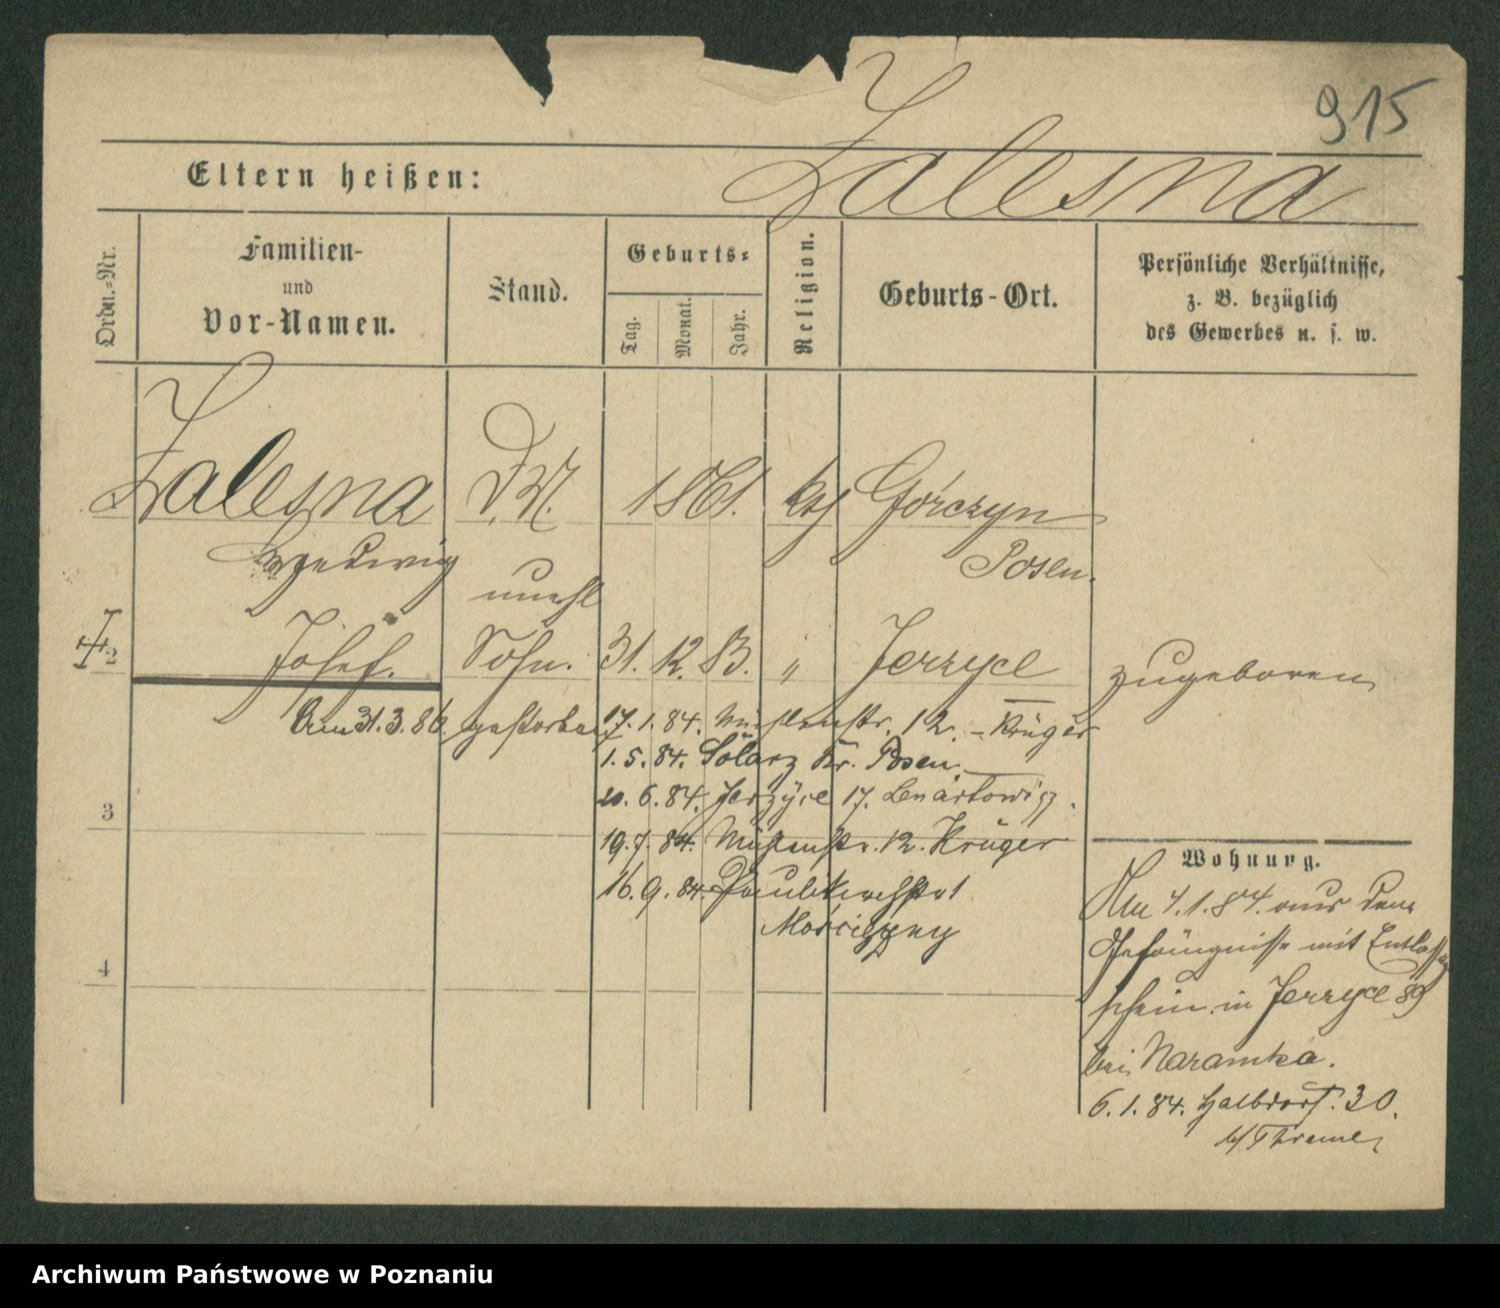 915
Eltern heißen: Zalesna
Ordn.-Nr.
Familien-
und
Vor-Namen.
Stand.
Geburts-
Tag.
Monat.
Jahr.
Religion.
Geburts-Ort.
Persönliche Verhältnisse,
z. B. bezüglich
des Gewerbes u. s. w.
Zalesna D.M. 1861. kth Górczyn
Hedwig Posen.
unehl
2 Josef. Sohn. 31. 12. 83. " Jerzyce zugeboren
Am 31.3.86. gestorben 17. 1. 84. 12. - Krüger
1. 5. 84. Kr. Posen.
3
20. 6. 84. Jerzyce 17. Lenartowicz.
19. 7. 84. 12. Krüger
16. 9. 84.
4
Wohnung.
Am 4.1.84. aus dem
Gefängnisse mit Entlassungs
schein in Jerzyce 89
bei Naramska.
6. 1. 84. Halbdorf. 30.
b/
Archiwum Państwowe w Poznaniu